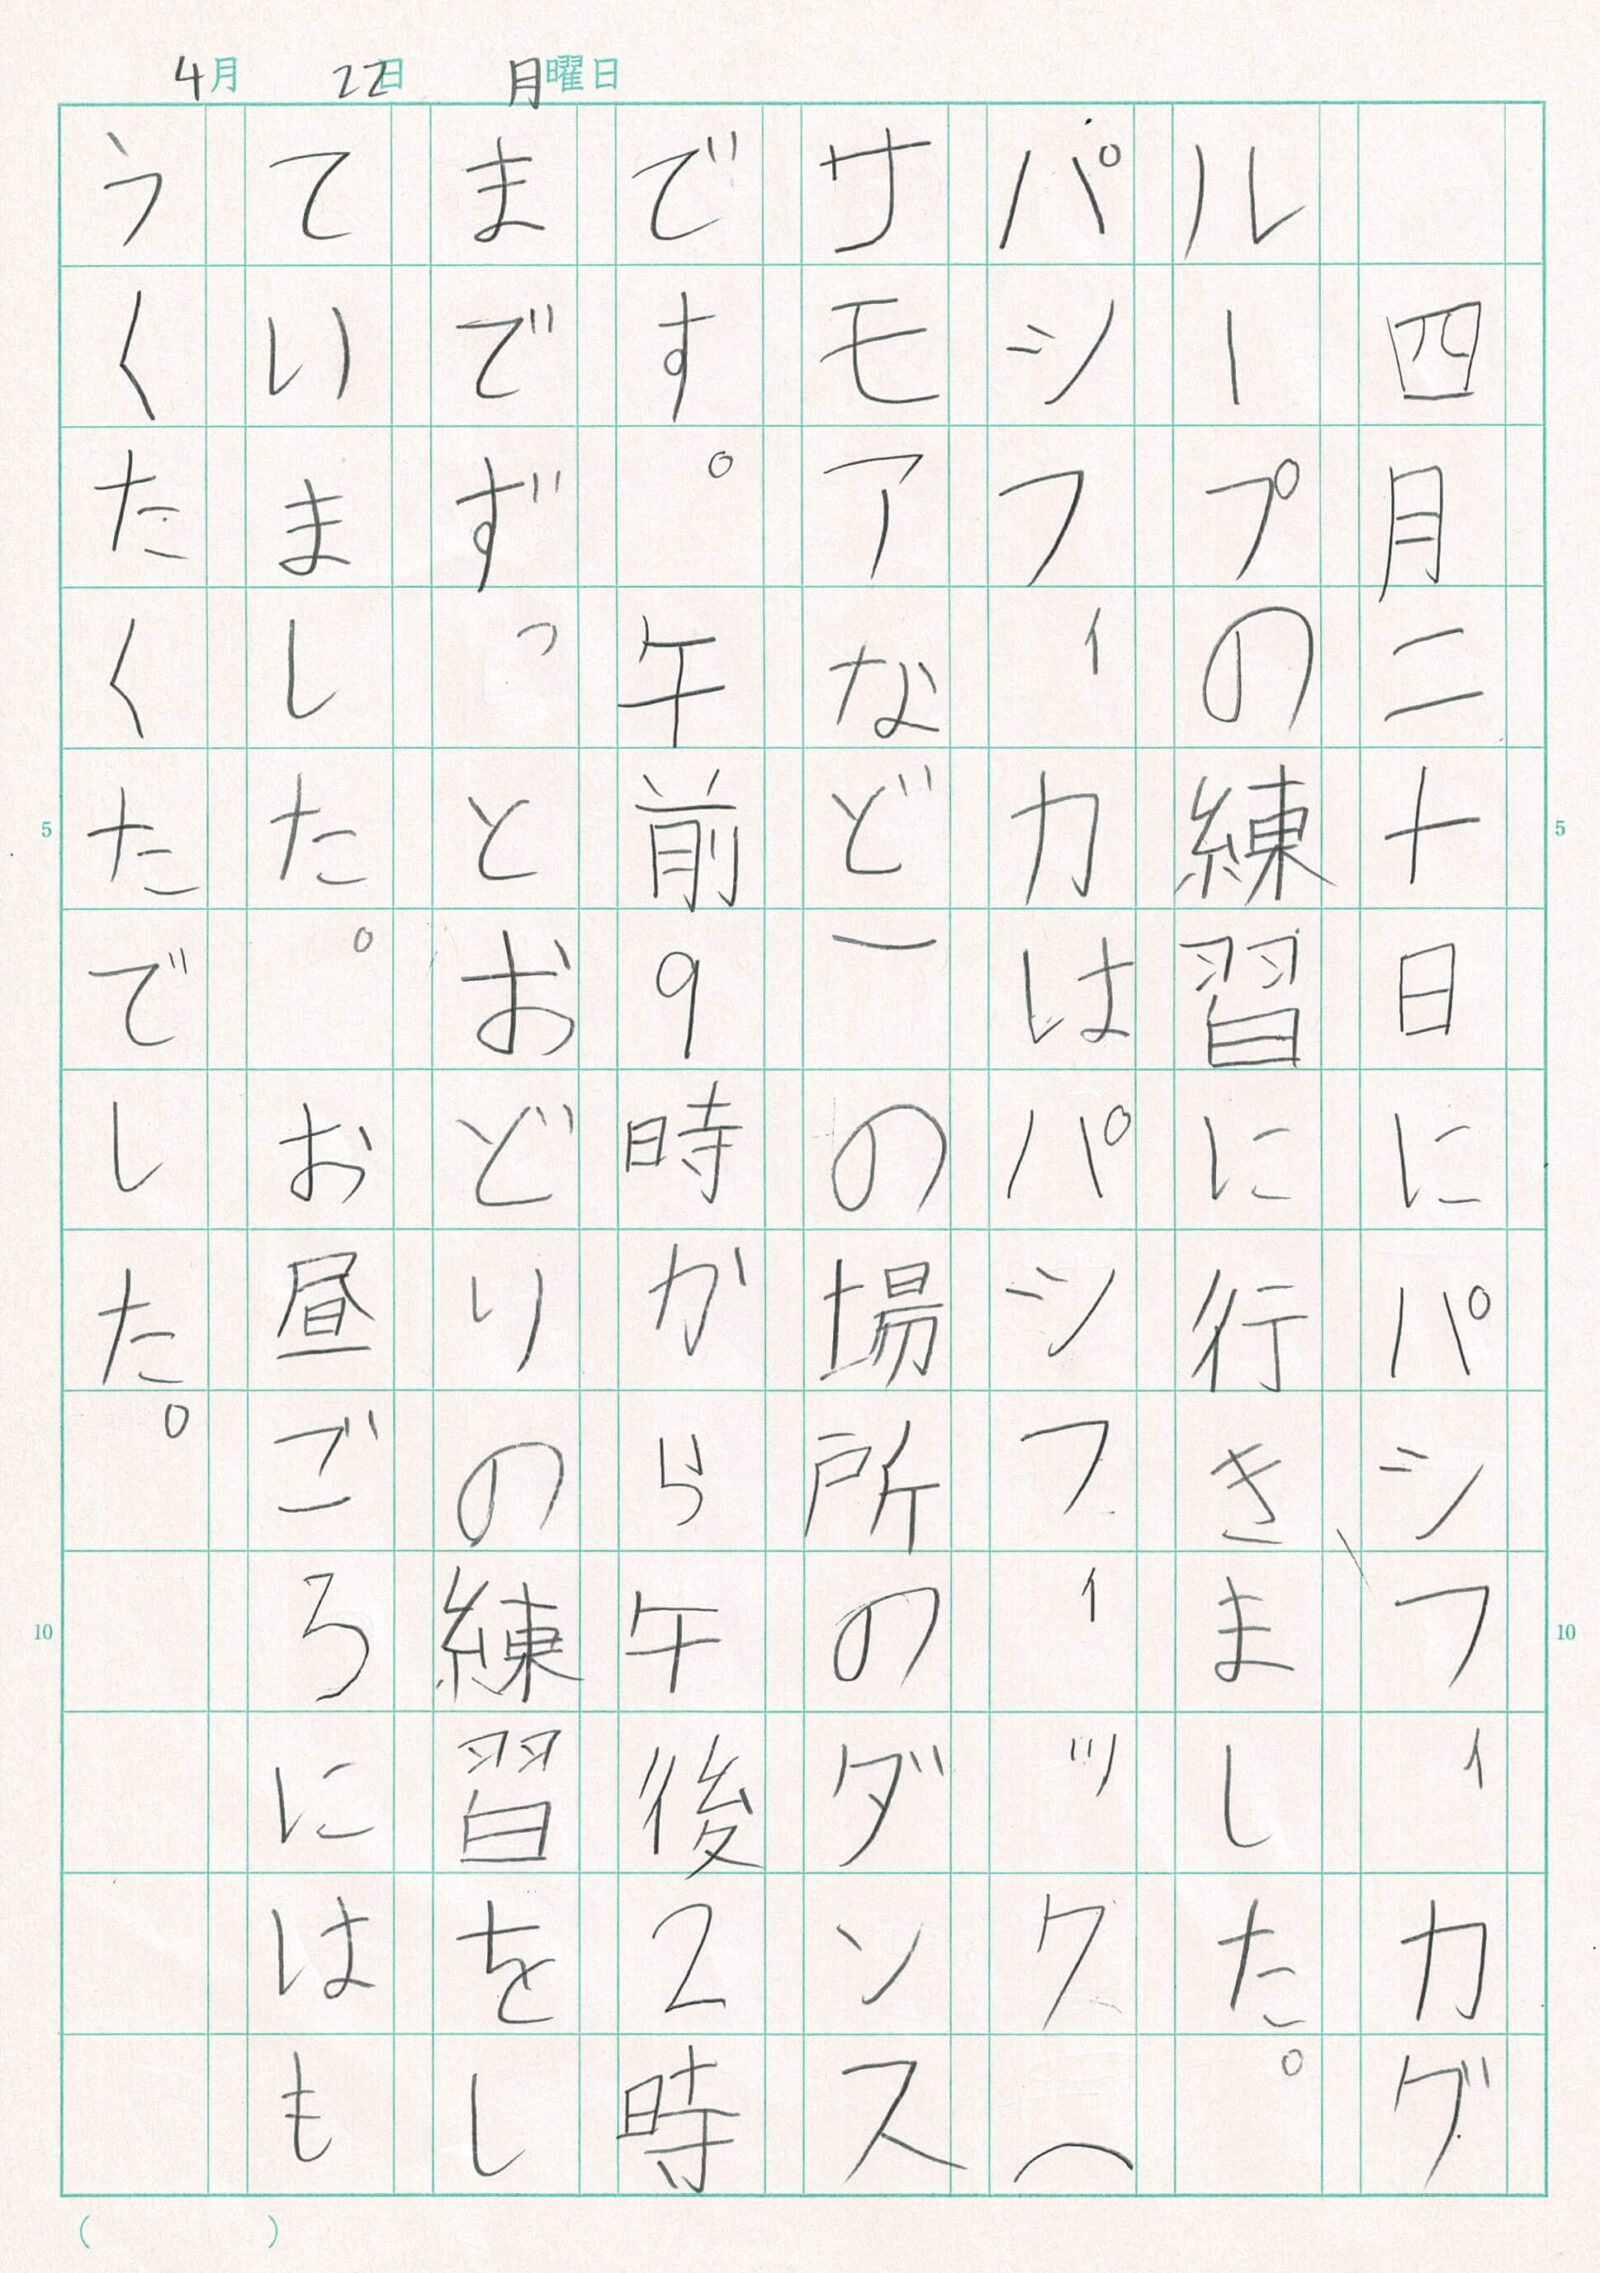 4月 22日 月曜日
四月二十日にパシフィカグ
ループの練習に行きました。
パシフィカはパシフィック（
サモアなど）の場所のダンス
です。午前9時から午後2時
まででず。っとおどりの練習をし
ていました。お昼ごろにはも
うくたくたでした。
5
10
5
10
(　)